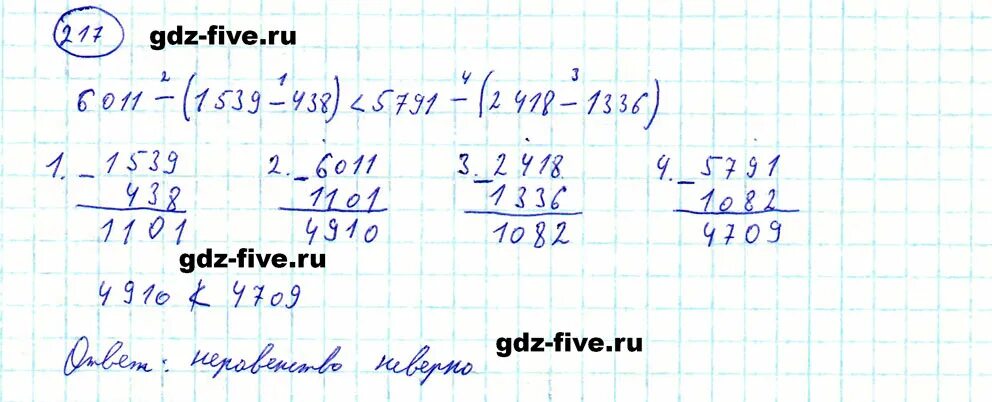 217 gdz-five.ru
gdz-five.ru
6011 - (1539 - 438) < 5791 - (2418 - 1336)
2 1 4 3
1. - 1539 2. - 6011 3. - 2418 4. - 5791
438 1101 1336 1082
1101 4910 1082 4709
gdz-five.ru
4910 ≮ 4709
gdz-five.ru
Ответ: неравенство неверно